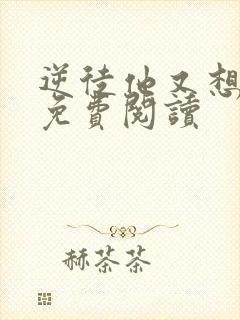 逆徒他又想
免費閱讀
赫茶茶